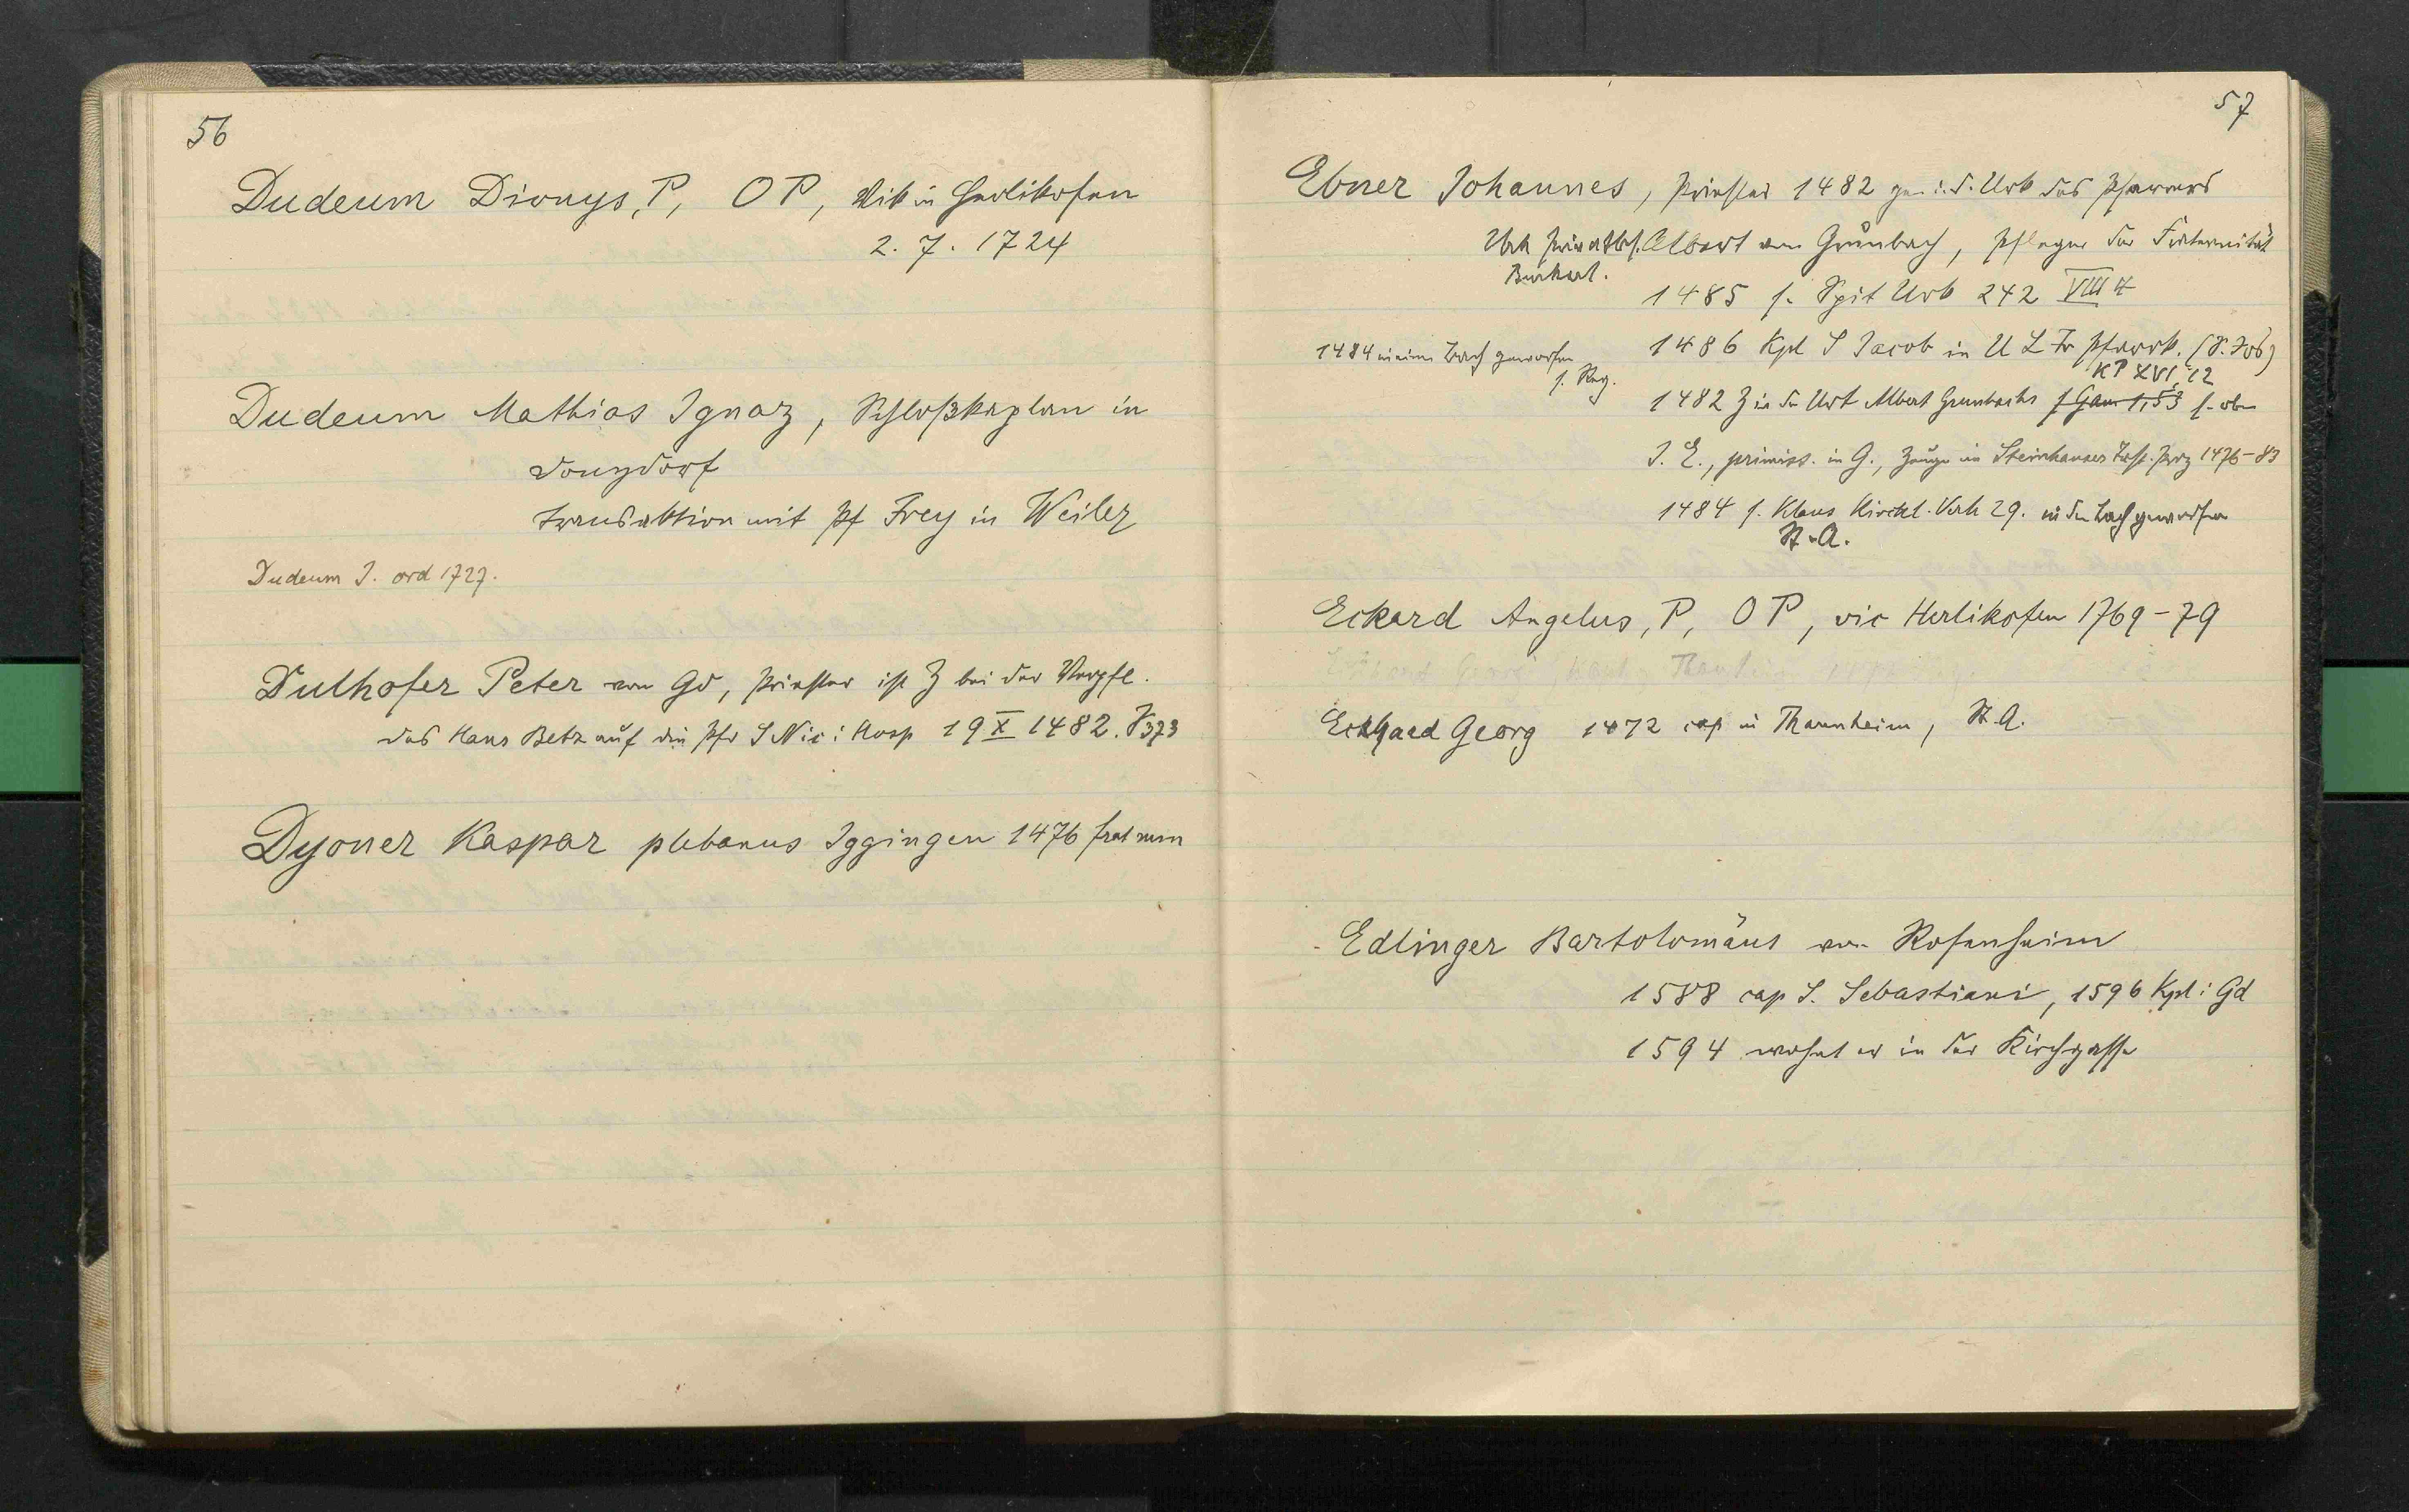 56
Dudeum Dionys, P, OP, Vik in Herlikofen
2. 7. 1724
Dudeum Mathias Ignaz, Schloßkaplan in
Donzdorf
Transaktion mit Pf Frey in Weiler
Dudeum J. ord 1727.
Dulhofer Peter von Gd, Priester ist Z bei der Verpfl.
des Hans Betz auf die Pfr S Nic i Hosp 19 X 1482. V 373
Dyoner Kaspar plebanus Iggingen 1476 frat mm
57
Ebner Johannes, Priester 1482 gen i. d. Urk des Pfarrers
Urk Privatbes. Albert von Grünbach, Pfleger der Fraternität
Burkart.
1485 s. Spit Urk 242 VIII 4
1484 in einen Bach geworfen
s. Reg.
1486 Kpl S Jacob in U L Fr Pfarrk. (S. Job)
KP XVI, 12
1482 Z in der Urk Albert Grünbachs s Gam 1,53 s. oben
J. E., primiss. in G., Zeuge im Steinhauser Proz 1476-83
1484 s. Klaus Kirchl. Verh 29. in den Bach geworfen
St. A.
Eckard Angelus, P, OP, vic Herlikofen 1769-79
Eckhard Georg 1472 cap in Thannheim, St. A.
Edlinger Bartolomäus von Rosenheim
1588 cap S. Sebastiani, 1596 Kpl i Gd
1594 wohnt er in der Kirchgasse